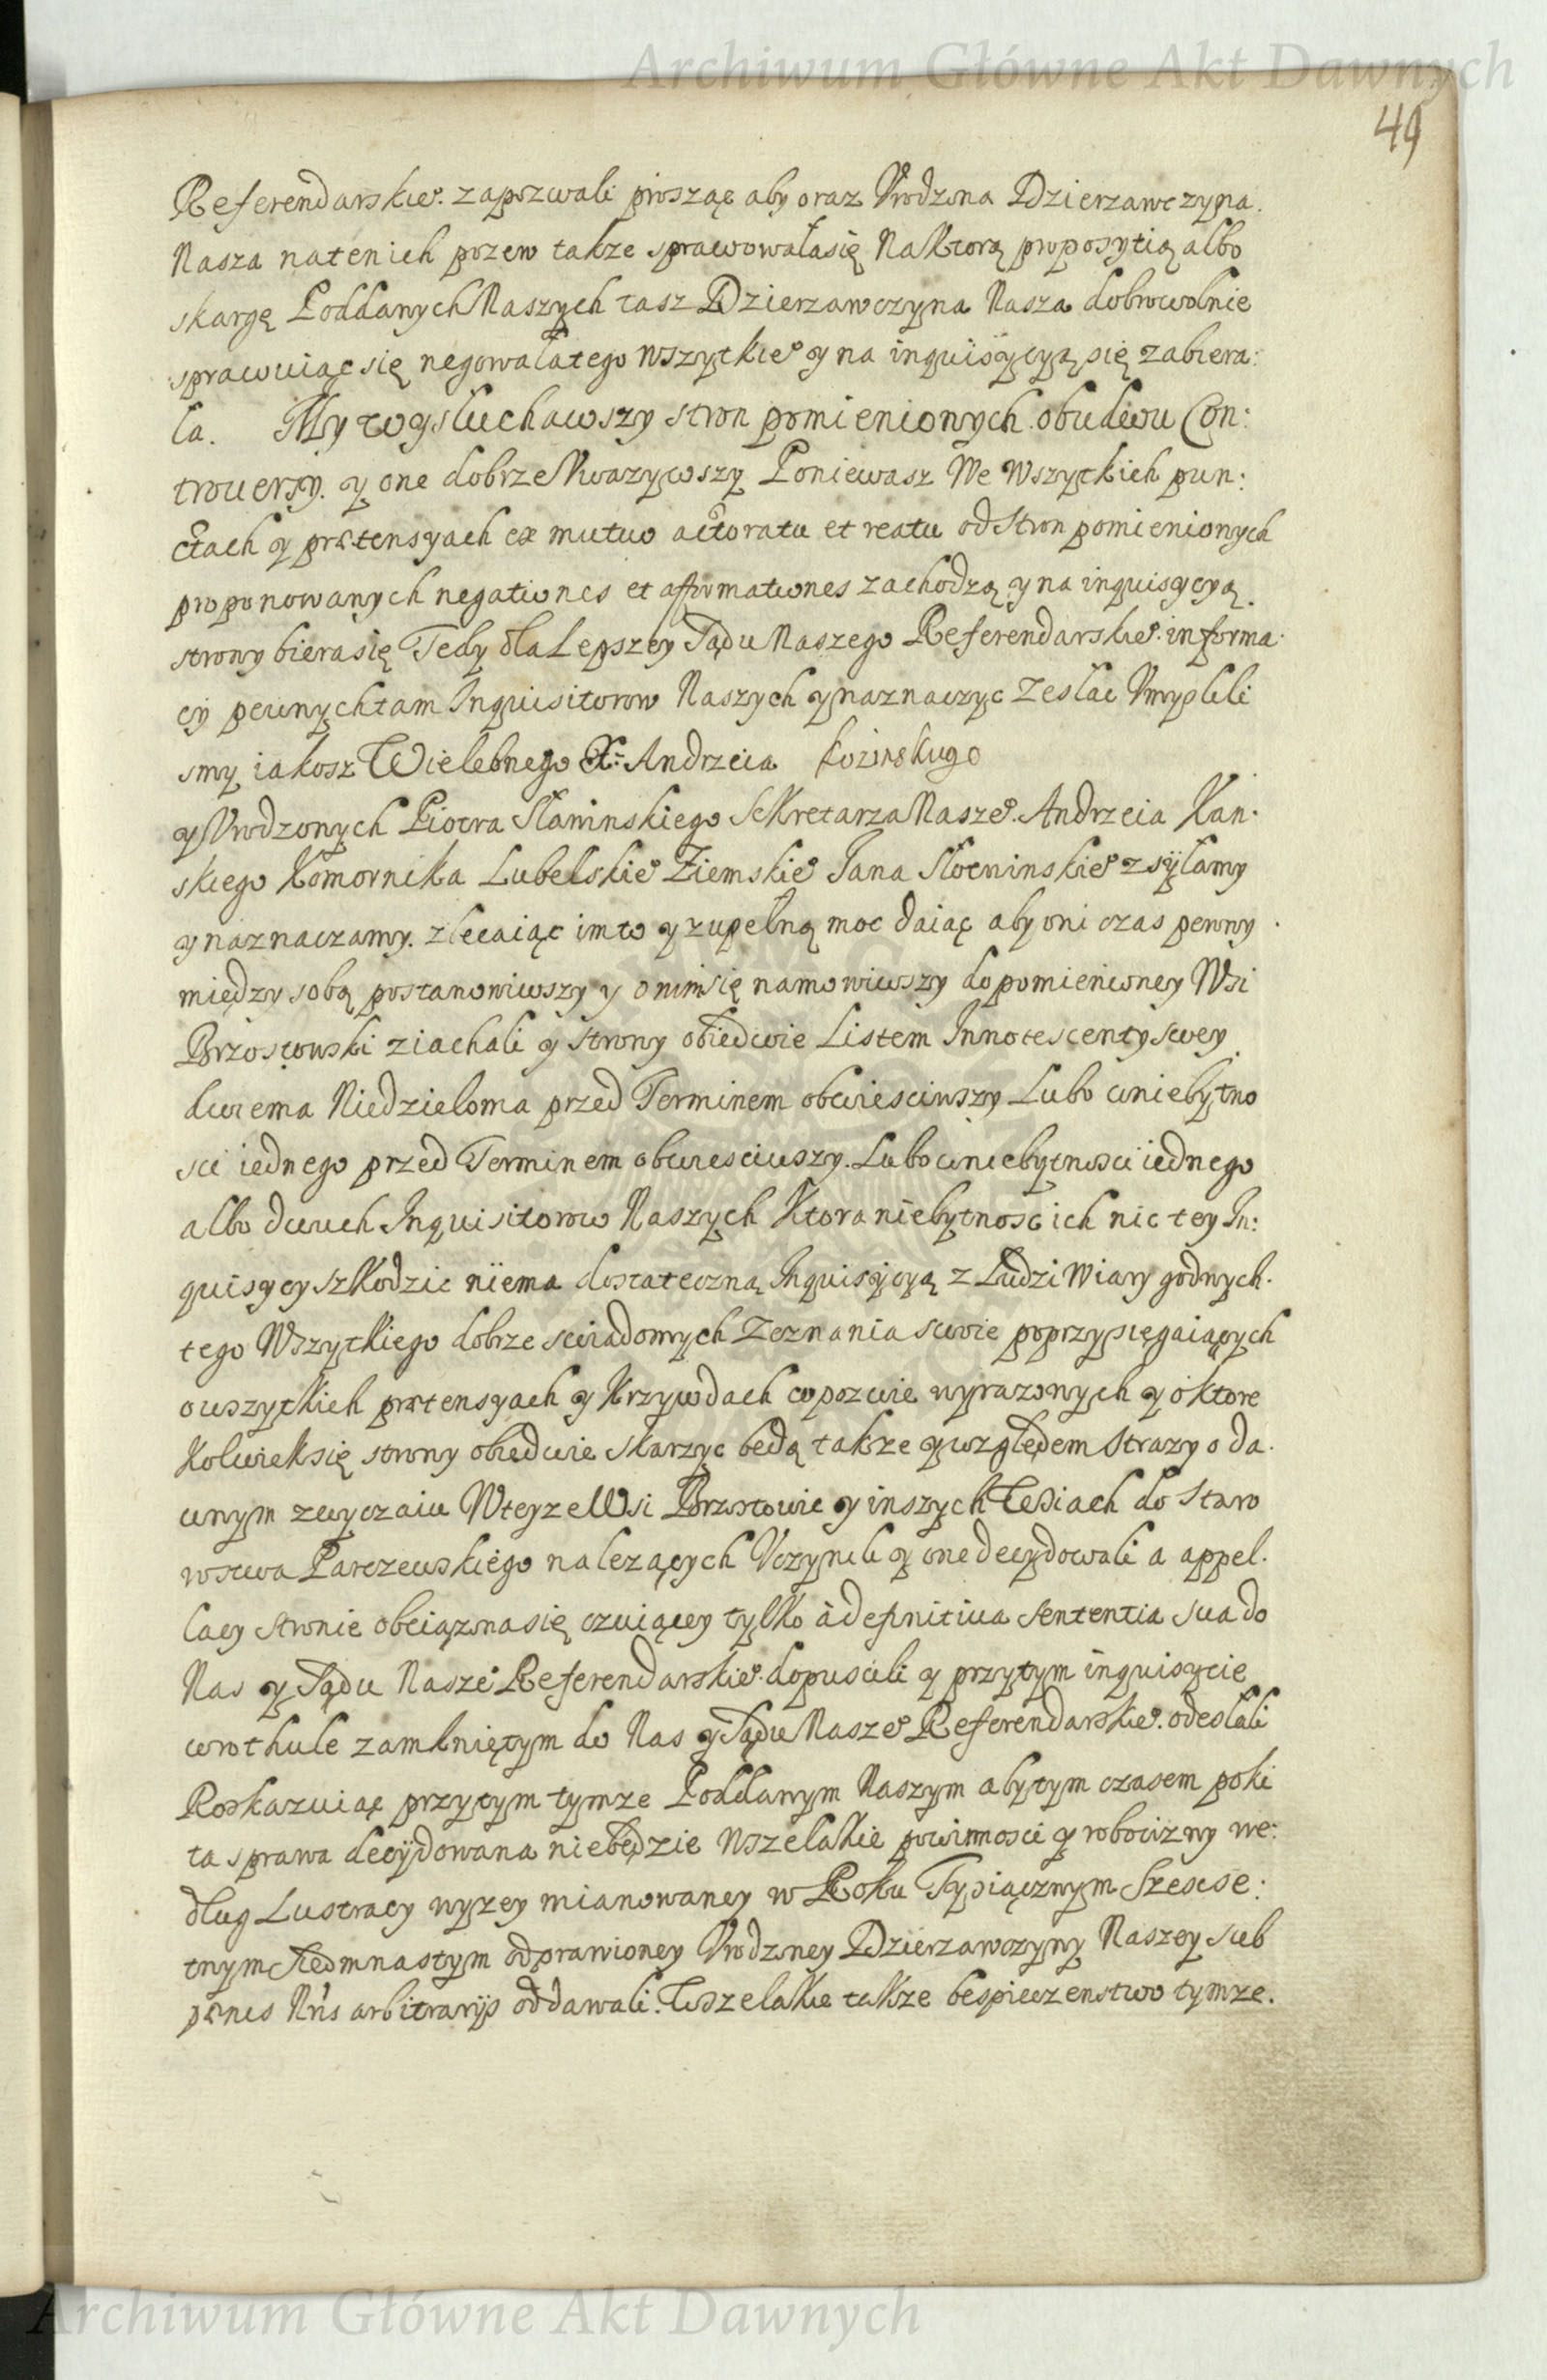 Archiwum Główne Akt Dawnych
49
Referendarskie°. zapozwali prosząc aby oraz Vrodzona Dzierzawczyna.
Nasza na ten ich pozew takze sprawowała się Na Ktorą proposytią albo
skargę Poddanych Naszych tasz Dzierzawczyna Nasza dobrowolnie
sprawuiąc się negowała tego wszytkie° y na inquisycyą się zabiera:
ła. My wysłuchawszy stron pomienionych obudwu Con:
trouersy. y one dobrze Vwazywszy Poniewasz We Wszytkich pun:
ctach y prætensyach ex mutuo actoratu et reatu od stron pomienionych
proponowanych negationes et affirmationes zachodzą y na inquisycyą
strony biera się Tedy dla Lepszey Sądu Naszego Referendarskie°. informa:
cy pewnych tam Inquisitorow Naszych y naznaczyc zesłac Vmyslili
smy iakosz Wielebnego X: Andrzeia
y Vrodzonych Piotra Slaminskiego Sekretarza Nasze°. Andrzeia Kan:
skiego Komornika Lubelskie° Ziemskie° Jana Słoeninskie° zsyłamy
y naznaczamy. zlecaiąc im to y zupełną moc daiąc aby oni czas pewny
między sobą postanowiwszy y o nim się namowiwszy do pomienioney Wsi
Brzostowski ziachali y strony obiedwie Listem Innotescenty swey
dwiema Niedzieloma przed Terminem obwiesciwszy Lubo w niebytno
sci iednego przed Terminem obwiesciwszy. Lubo w niebytnosci iednego
albo dwuch Inquisitorow Naszych Ktora niebytnosc ich nic tey In:
quisycy szkodzic niema dostateczną Inquisycyą z Ludzi Wiary godnych.
tego Wszytkiego dobrze swiadomych Zeznania swoie poprzysięgaiących
o wszytkich prætensyach y Krzywdach w pozwie wyrazonych y o ktore
Kolwiek się strony obiedwie skarzyc będą takze y względem Strazy o da:
wnym zwyczaiu W teyze Wsi Brzostowie y inszych Wsiach do Staro
wstwa Parczewskiego nalezących Vczynili y one decydowali a appel:
lacy stronie obciązona się czuiącey tylko à definitiua sententia sua do
Nas y Sądu Nasze° Referendarskie°. dopuscili y przy tym inquisycie
w rothule zamkniętym do Nas y Sądu Nasze° Referendarskie°. odesłali
Roskazuiąc przy tym tymze Poddanym Naszym aby tym czasem poki
ta sprawa decydowana niebędzie Wszelakie powinnosci y robocizny we:
dług Lustracy wyzey mianowaney w Roku Tysiącznym Szescse:
tnym Siedmnastym odprawioney Vrodzoney Dzierzawczyny Naszey sub
pœnis Nr̃is arbitrarijs oddawali. Wszelakie takze bespieczenstwo tymze.
Archiwum Główne Akt Dawnych